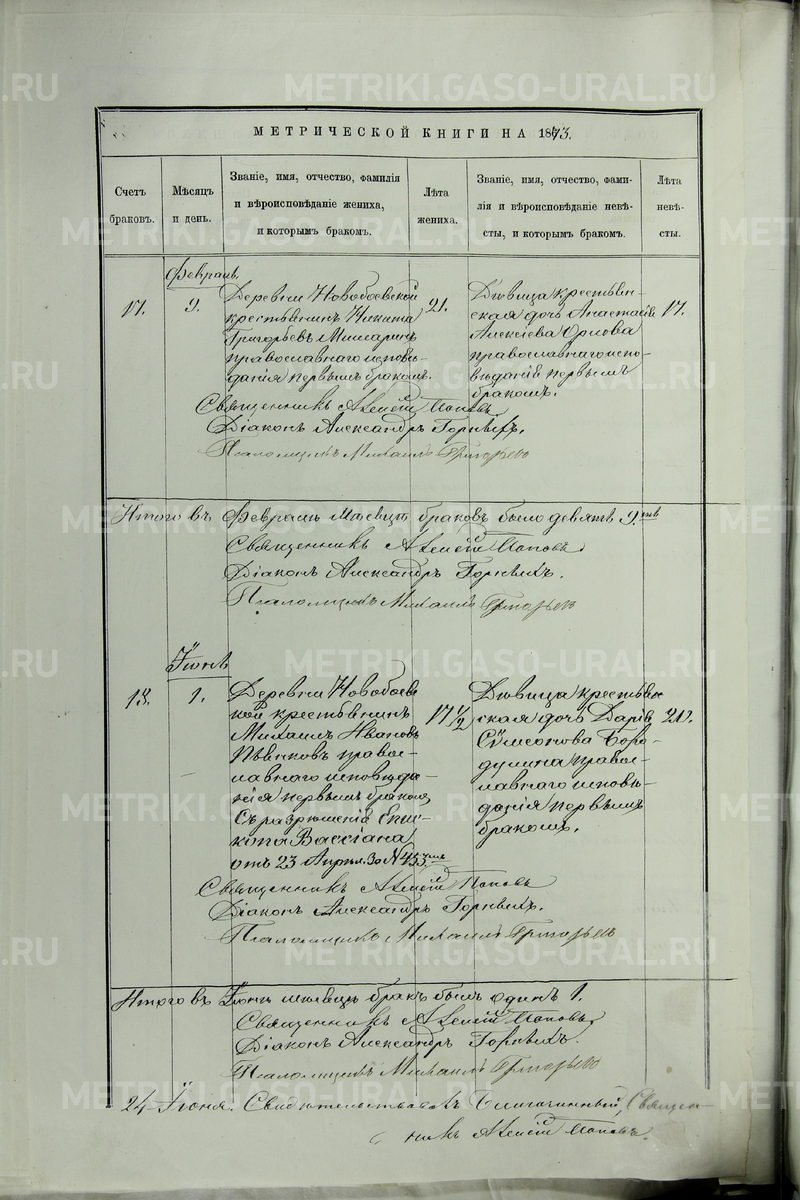 МЕТРИЧЕСКОЙ КНИГИ НА 1873.
Счетъ браковъ.
Мѣсяцъ и день.
Званіе, имя, отчество, фамилія
и вѣроисповѣданіе жениха,
и которымъ бракомъ.
Лѣта жениха.
Званіе, имя, отчество, фами-
лія и вѣроисповѣданіе невѣ-
сты, и которымъ бракомъ.
Лѣта невѣ-
сты.
Февраль
17.
9.
Деревни Новобаевской
крестьянинъ Никита
Григорьевъ
православнаго исповѣ-
данія первымъ бракомъ.
21.
Дѣвица крестьян-
ская дочь Анастасія
Алексѣева Орлова
православнаго испо-
вѣданія первымъ
бракомъ.
17.
Священникъ Алексій Поповъ
Діаконъ Александръ
Псаломщикъ Михаилъ Григорьевъ
Итого въ Февралѣ мѣсяцѣ браковъ было девять 9.
Священникъ Алексій Поповъ.
Діаконъ Александръ
Псаломщикъ Михаилъ Григорьевъ
Іюнь
18.
1.
Деревни Новобаев-
кой крестьянинъ
Михаилъ Ивановъ
Пѣнковъ правос-
лавнаго исповѣда-
нія первымъ бракомъ,
Съ разрѣшенія Епис-
копа Вассіана
отъ 23 Апрѣл. За № 453
17 1/2
Дѣвица крестьян-
ская дочь Дарія
Сѵмеонова Боро-
дулина правос-
лавнаго исповѣ-
данія первымъ
бракомъ.
20.
Священникъ Алексій Поповъ
Діаконъ Александръ
Псаломщикъ Михаилъ Григорьевъ
Итого въ Іюнь мѣсяцъ бракъ былъ одинъ 1.
Священникъ Алексій Поповъ
Діаконъ Александръ
Псаломщикъ Михаилъ Григорьевъ
24 Іюня. Свидѣтельствовалъ Благочинный, Священ-
никъ Алексій Поповъ.
METRIKI.GASO-URAL.RU